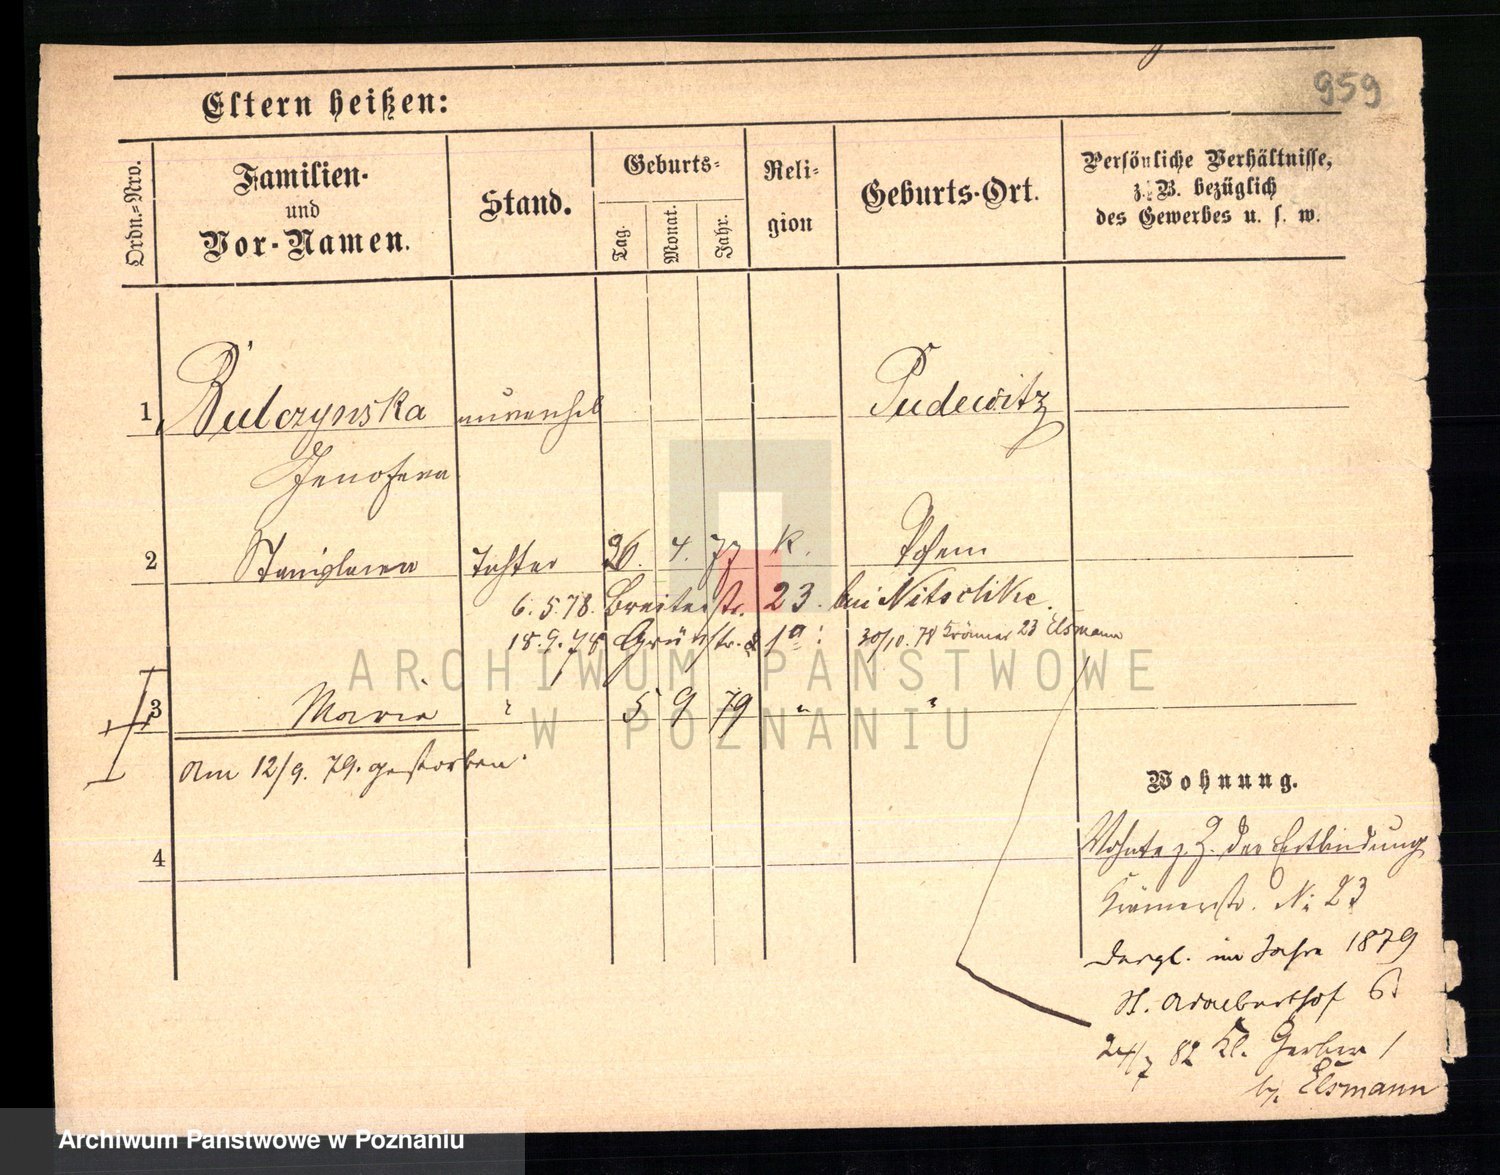 959
Eltern heißen:
Ordn.-Nro.
Familien-
und
Vor-Namen.
Stand.
Geburts-
Tag.
Monat.
Jahr.
Reli-
gion
Geburts-Ort.
Persönliche Verhältnisse,
z. B. bezüglich
des Gewerbes u. s. w.
1 Bulczynska unverehel Pudewitz
Genofeva
2 Stanislawa Tochter 26. 4. 77 K. Posen
6. 5. 78. Breitestr. 23. bei Nitschke.
18. 9. 78 Grünstr. 30/10. 78 Krämer 23 Elsmann
3 Maria " 5 9 79 " "
Am 12/9. 79. gestorben.
4
Wohnung.
Wohnte z. Z. der Entbindung
Krämerstr. N: 23
Desgl. im Jahre 1879
St. Adalberthof 6
24/7 82 Kl. Gerber 1
b/. Elsmann
ARCHIWUM PAŃSTWOWE
W POZNANIU
Archiwum Państwowe w Poznaniu